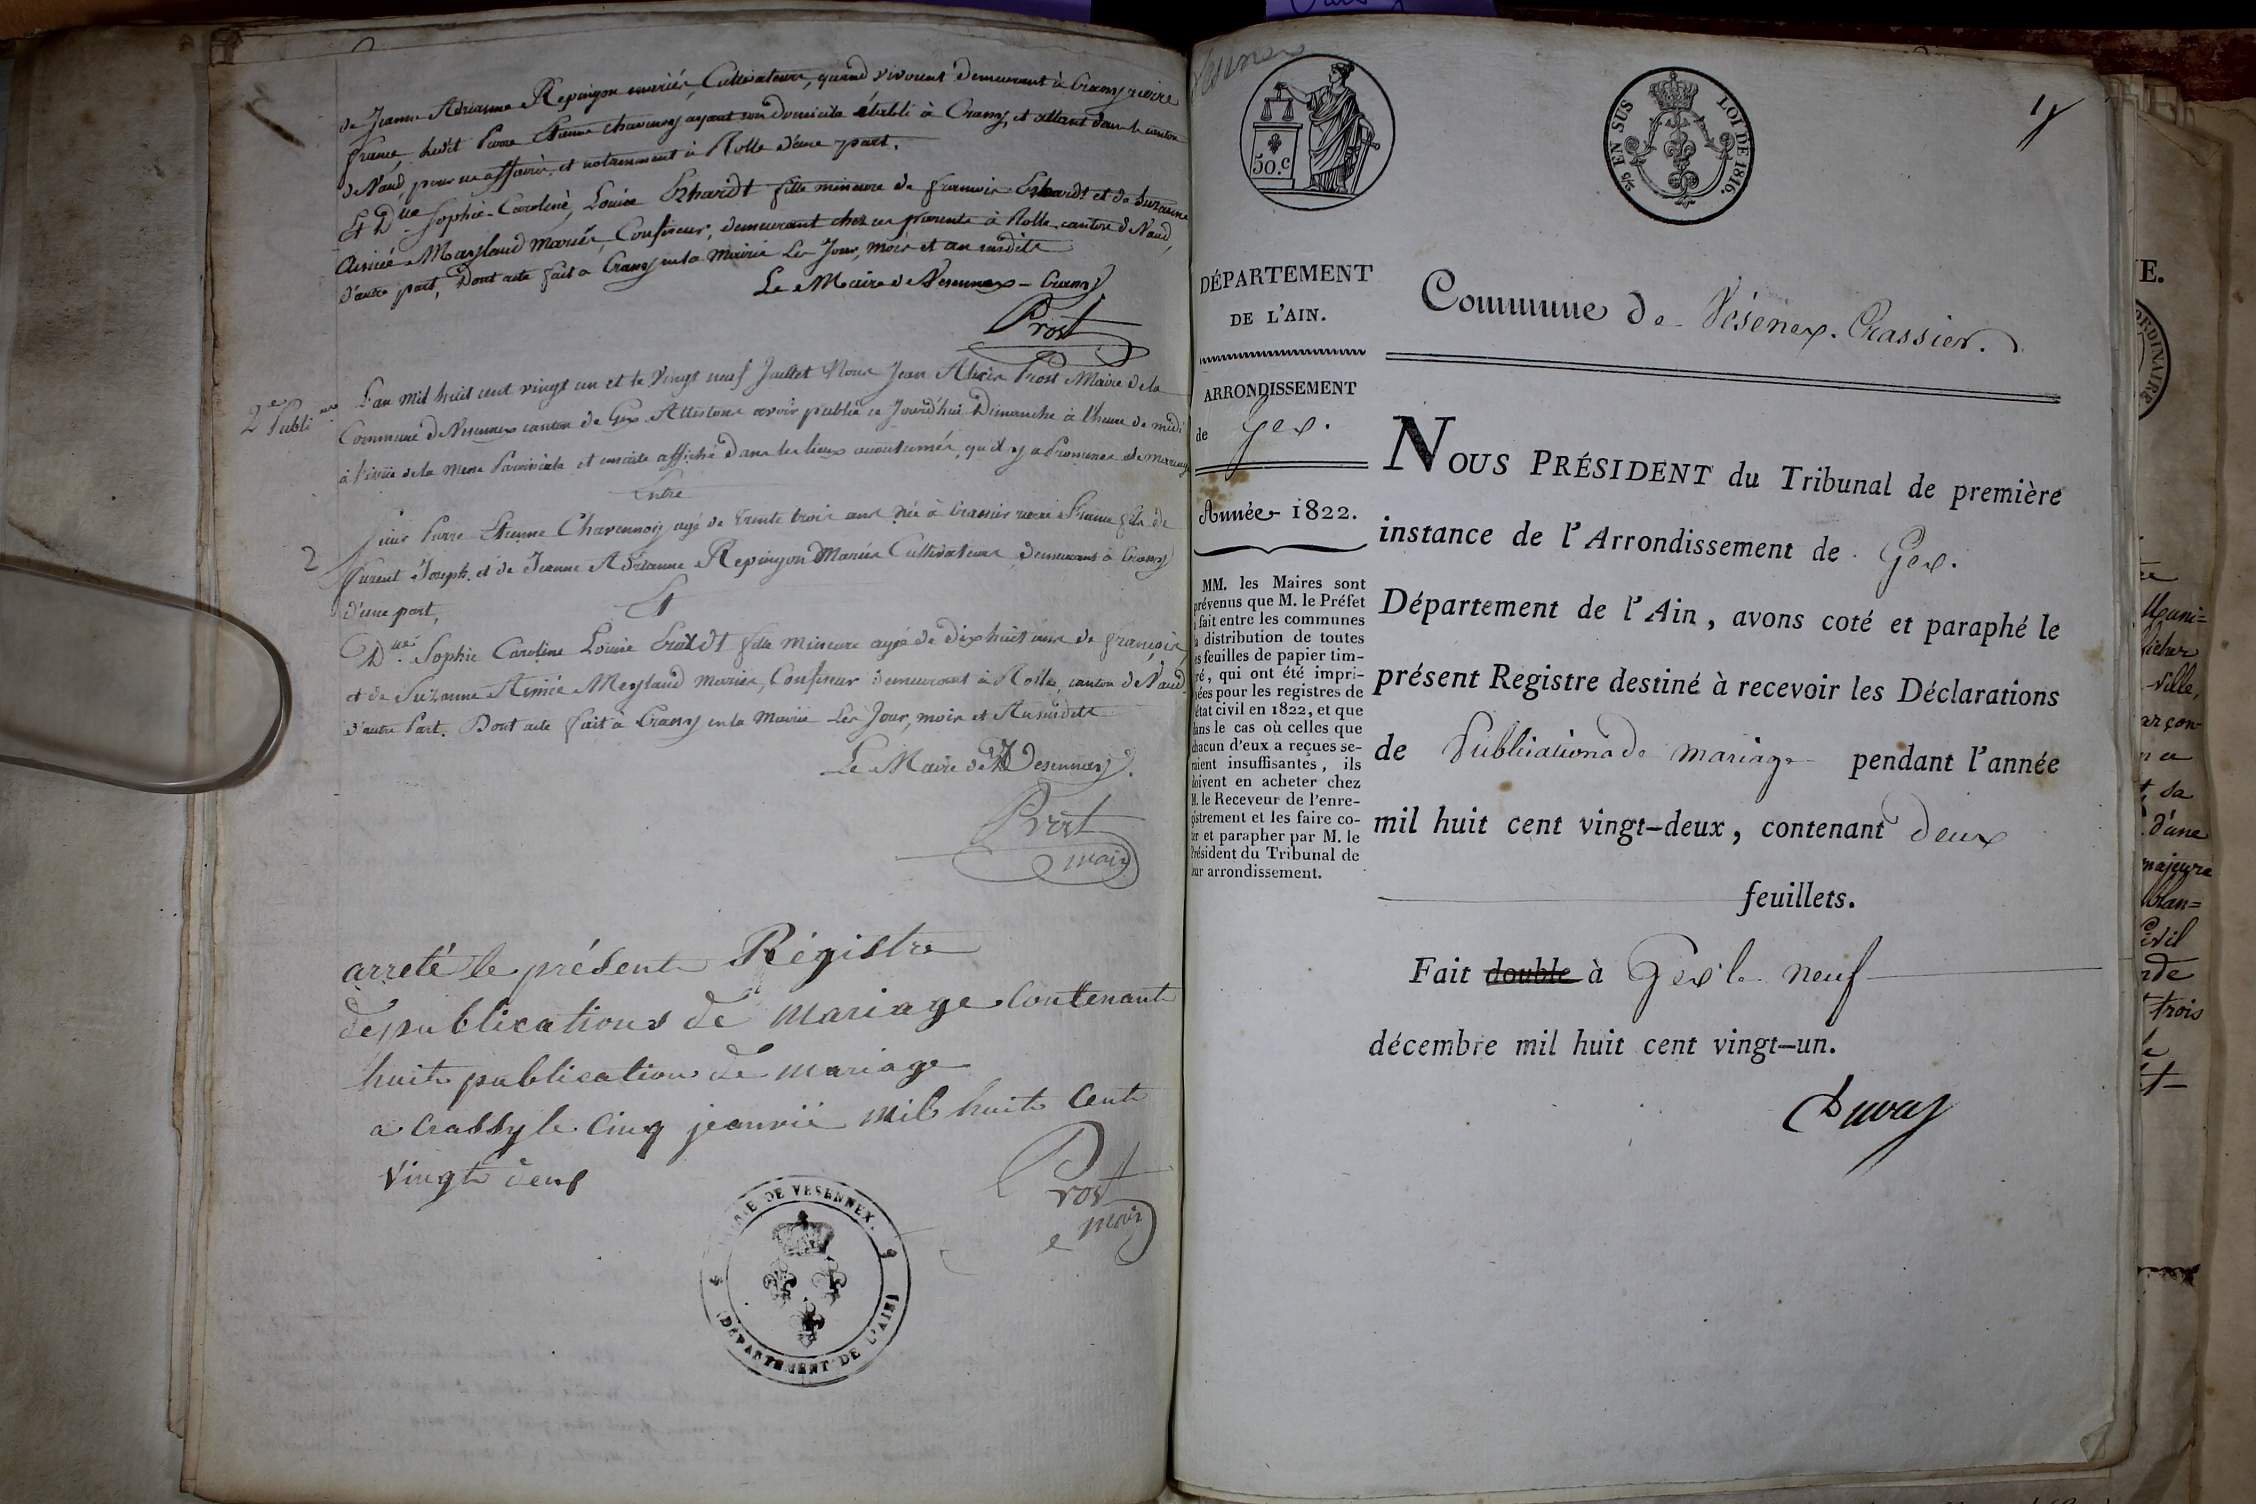 de Jeanne Adrianne Repingon mariés, Cultivateurs, quand vivoient demeurant à Crassy rierre
france, ledit Pierre Etienne Chavennoy ayant son Domicile établi à Crassy, et allant dans le canton
de Vaud, pour ses affaires, et notamment à Rolle d'une part.
Et Dlle Sophie-Caroline, Louise Erhardt fille mineure de francois Erhardt et de Suzanne
Aimée Maylaud mariés, Confiseur, demeurant chez ses parents à Rolle canton de Vaud,
d'autre part, Dont acte fait à Crassy en la Mairie Les Jour, mois et an susdits
Le Maire de Vesennex-Crassy
Prost
2e Publi
L'an mil huit cent vingt un et le Vingt neuf Juillet Nous Jean Alexis Prost Maire de la
Commune de Vesennex canton de Gex Attestons avoir publié ce Jourd'hui Dimanche à l'heure de midi
à l'issue de la Messe Paroissiale et ensuite affiché dans les lieux accoutumés, qu'il y a Promesses de mariage
Entre
2
Sieur Pierre Etienne Chavennoy agé de trente trois ans né à Crassier france fils de
furent Joseph, et de Jeanne Adrianne Repingon Mariés Cultivateurs demeurans à Crassy
d'une part,
Et
Dlle Sophie Caroline Louise Erardt fille Mineure agée de Dix huit ans de françois
et de Suzanne Aimée Meylaud mariés, Confiseur demeurant à Rolle, canton de Vaud
d'autre Part. Dont acte fait à Crassy en la Mairie Les Jour, mois et An susdits
Le Maire de Vesennex
Prost
maire
arreté le présent Régistre
de publications de mariage contenant
huit publication de mariage
a Crassy le Cinq jeanvié mil huit Cent
vingt deux
Prost
maire
MAIRIE DE VESENNEX.
(DÉPARTEMENT DE L'AIN)
50.c
5/8 EN SUS
LOI DE 1816.
DÉPARTEMENT
DE L'AIN.
ARRONDISSEMENT
de Gex.
Année 1822.
MM. les Maires sont
prévenus que M. le Préfet
a fait entre les communes
la distribution de toutes
les feuilles de papier tim-
bré, qui ont été impri-
mées pour les registres de
l'état civil en 1822, et que
dans le cas où celles que
chacun d'eux a reçues se-
raient insuffisantes, ils
doivent en acheter chez
M. le Receveur de l'enre-
gistrement et les faire co-
ter et parapher par M. le
Président du Tribunal de
leur arrondissement.
Commune de Vésenex. Crassier.
NOUS PRÉSIDENT du Tribunal de première
instance de l'Arrondissement de Gex.
Département de l'Ain, avons coté et paraphé le
présent Registre destiné à recevoir les Déclarations
de Publications de mariage pendant l'année
mil huit cent vingt-deux, contenant deux
feuillets.
Fait double à Gex le neuf
décembre mil huit cent vingt-un.
Duvay
E.
ORDINAIRE
Muni=
ville,
arçon
sa
d'une
majeure
Civil
trois